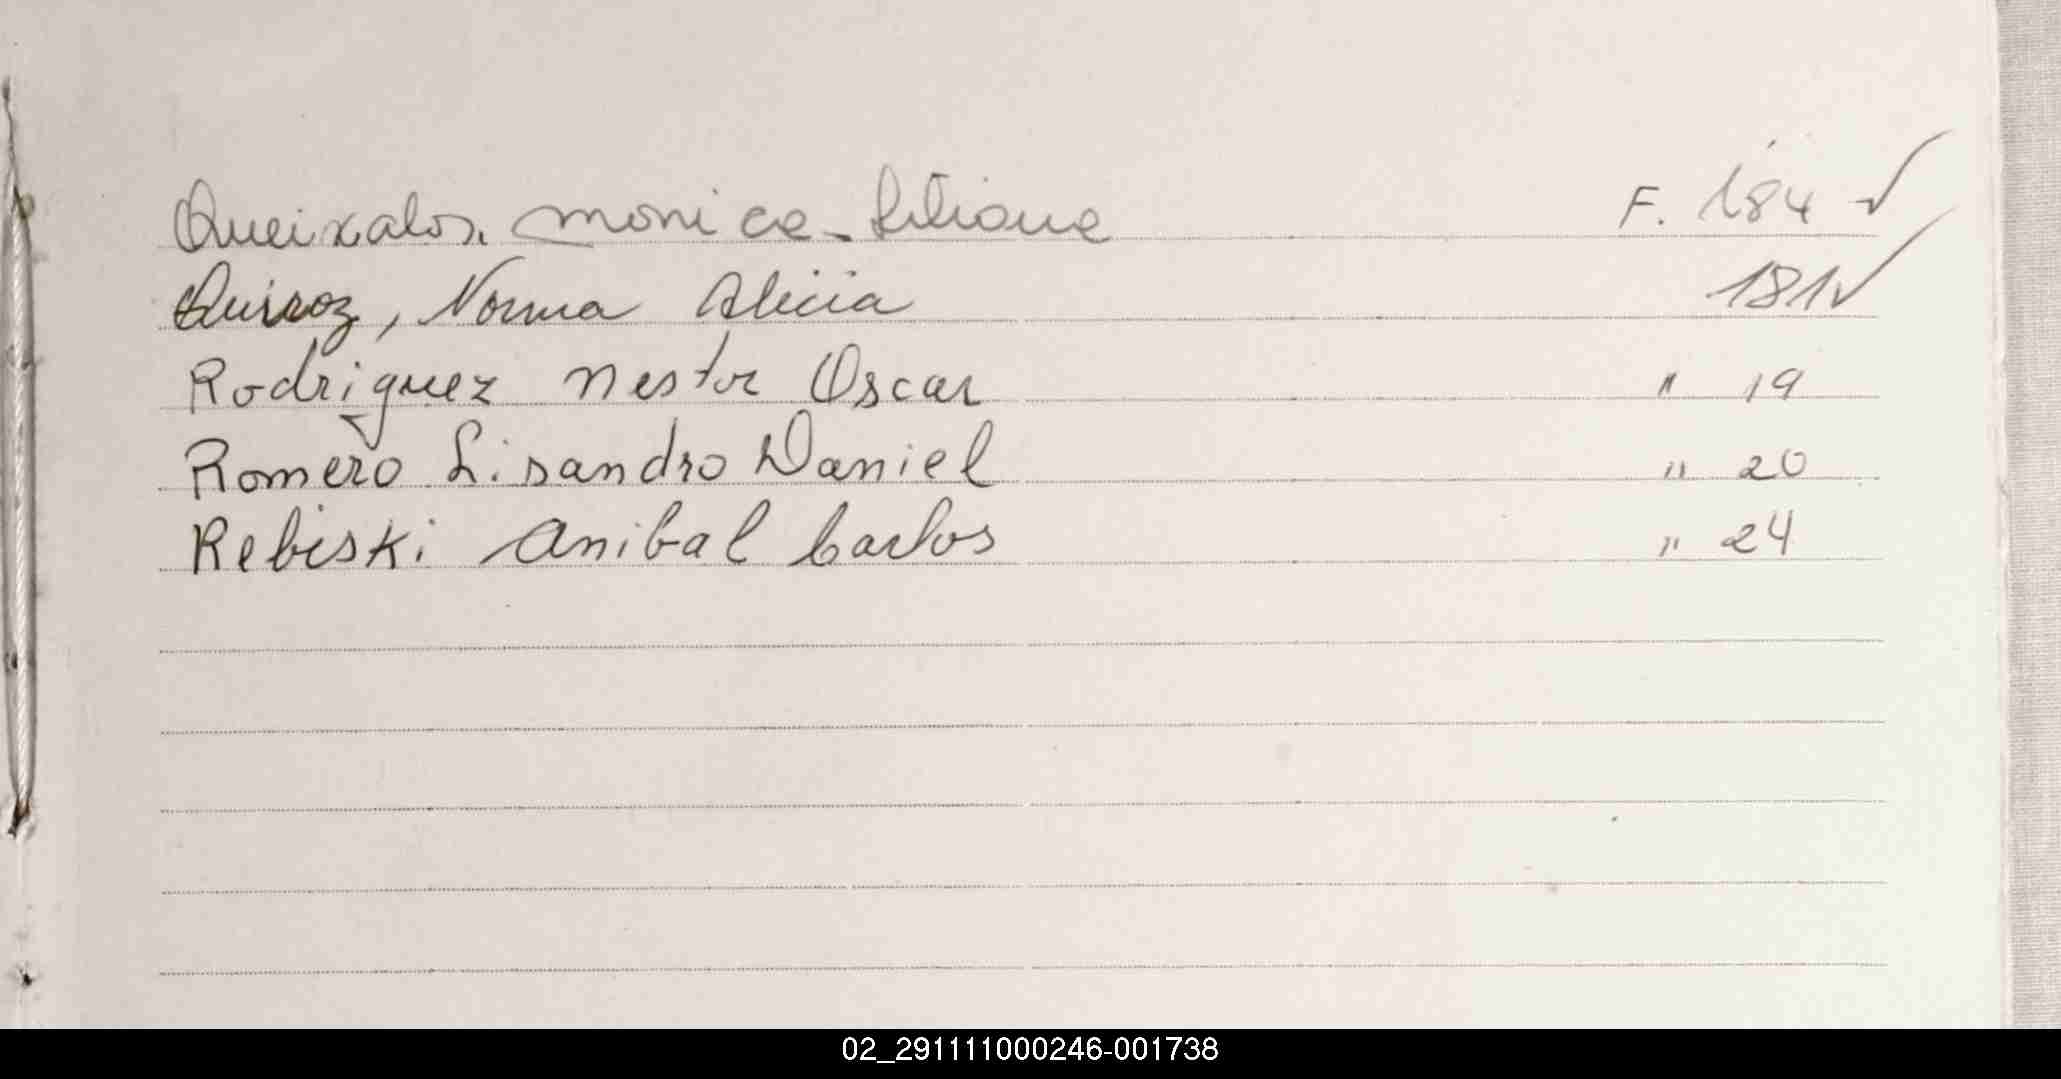 Queixalos, monica Liliana F. 184 ✓
Quiroz, Norma Alicia 181 ✓
Rodriguez Nestor Oscar " 19
Romero Lisandro Daniel " 20
Rebiski Anibal Carlos " 24
02_291111000246-001738